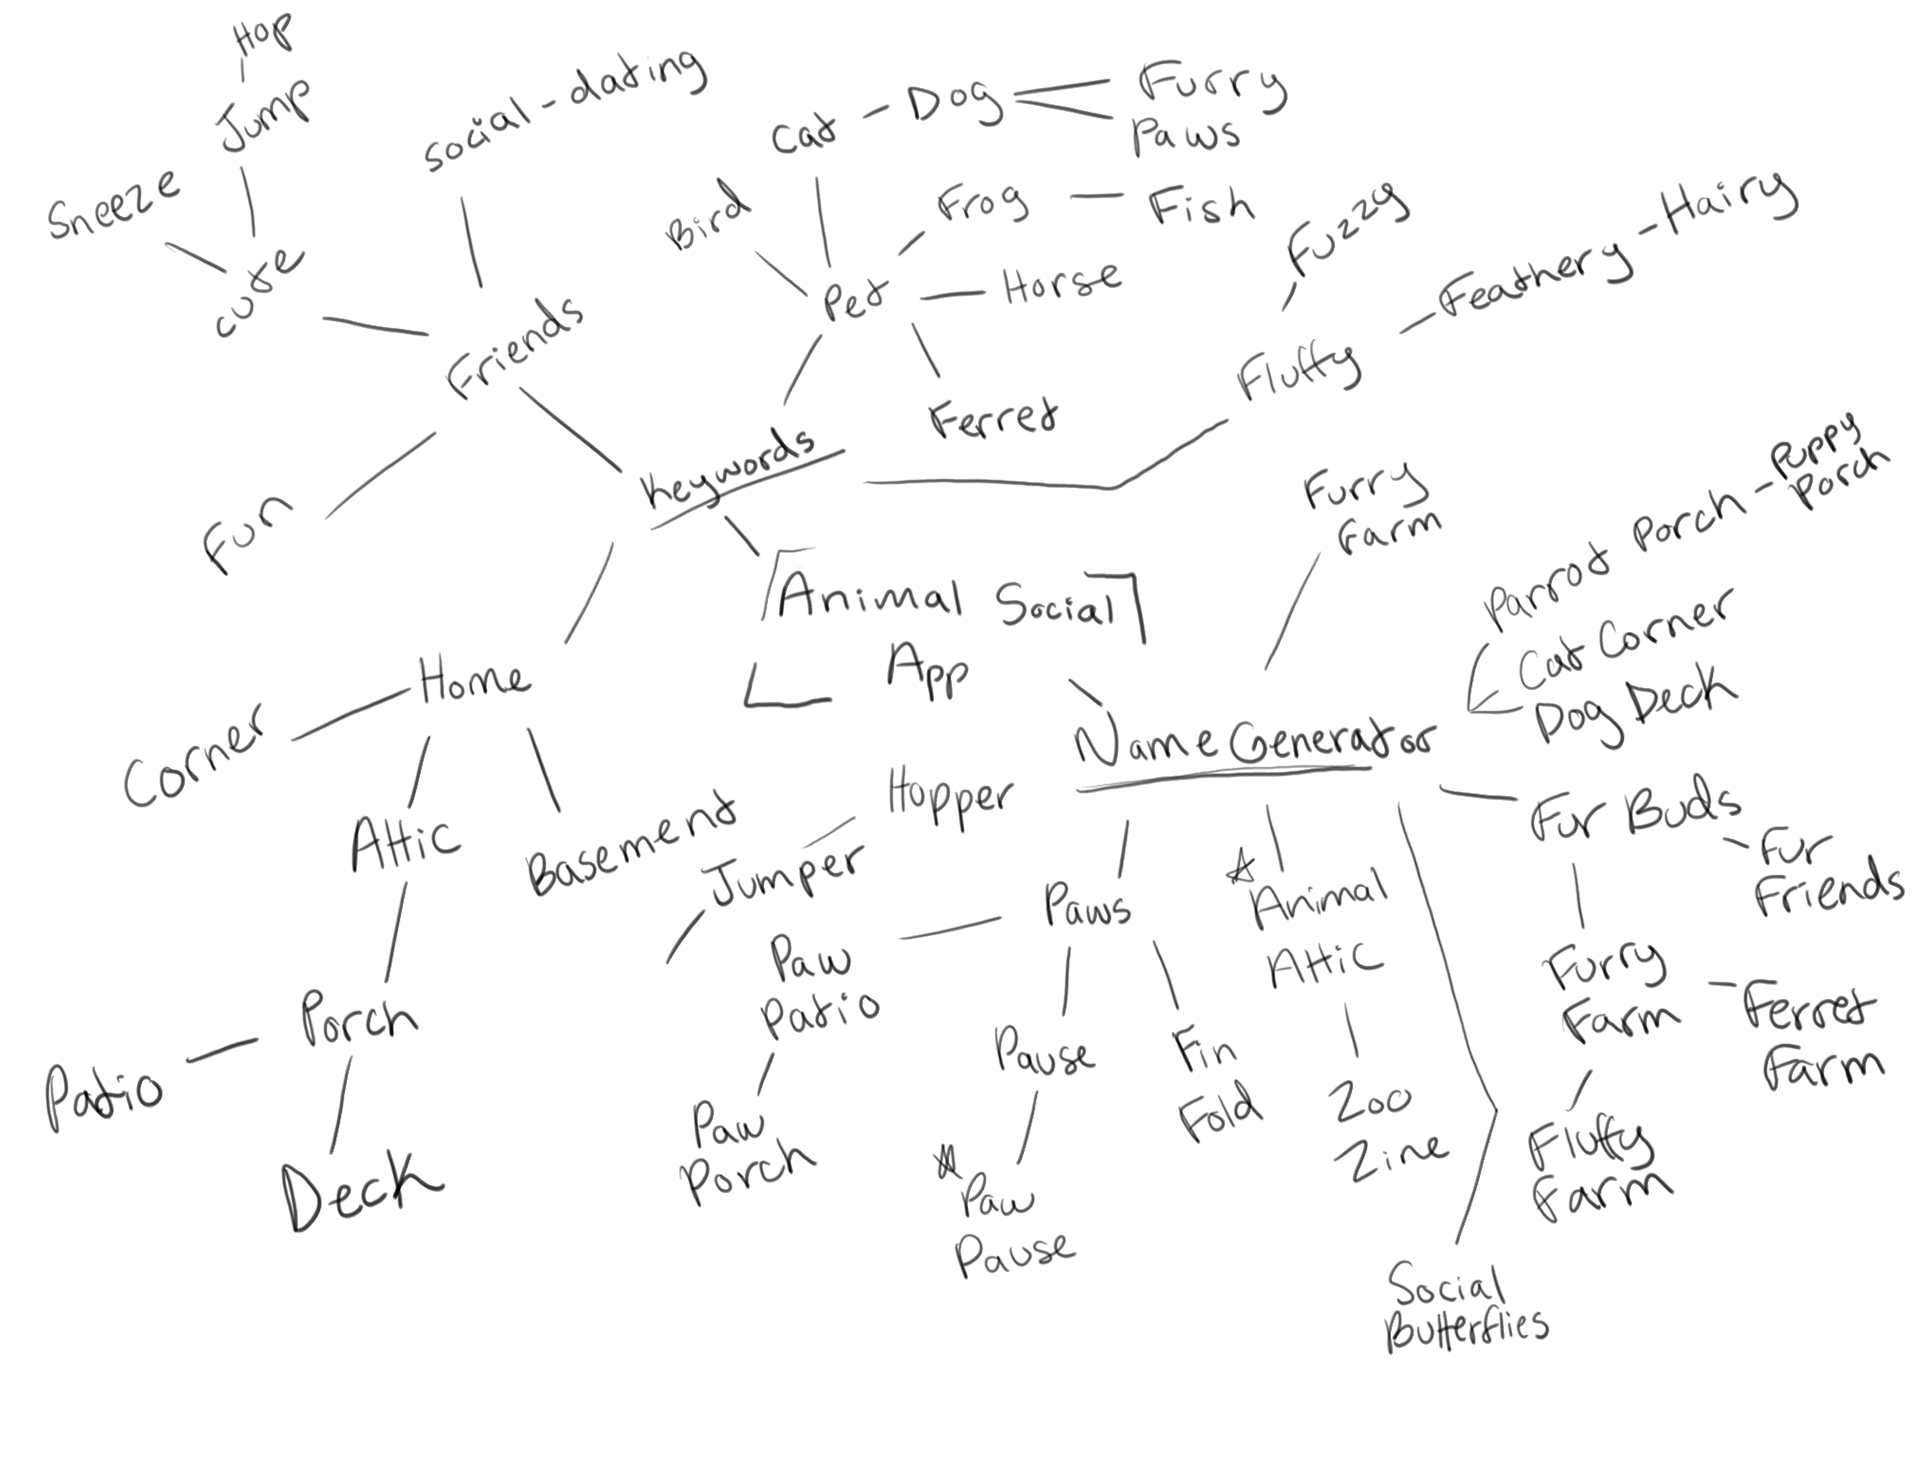 Hop
Jump
Sneeze
cute
social - dating
Friends
Fun
Cat - Dog
Furry
Paws
Bird
Frog - Fish
Pet
Horse
Ferret
Fuzzy
Fluffy
- Feathery - Hairy
Keywords
Animal Social
App
Home
Corner
Attic
Basement
Porch
Patio
Deck
Furry
Farm
Parrot Porch - Puppy
Porch
Cat Corner
Dog Deck
Name Generator
Hopper
Jumper
Paws
Paw
Patio
Paw
Porch
Pause
Paw
Pause
Fin
Fold
Animal
Attic
Zoo
Zine
Fur Buds
- Fur
Friends
Furry
Farm
- Ferret
Farm
Fluffy
Farm
Social
Butterflies